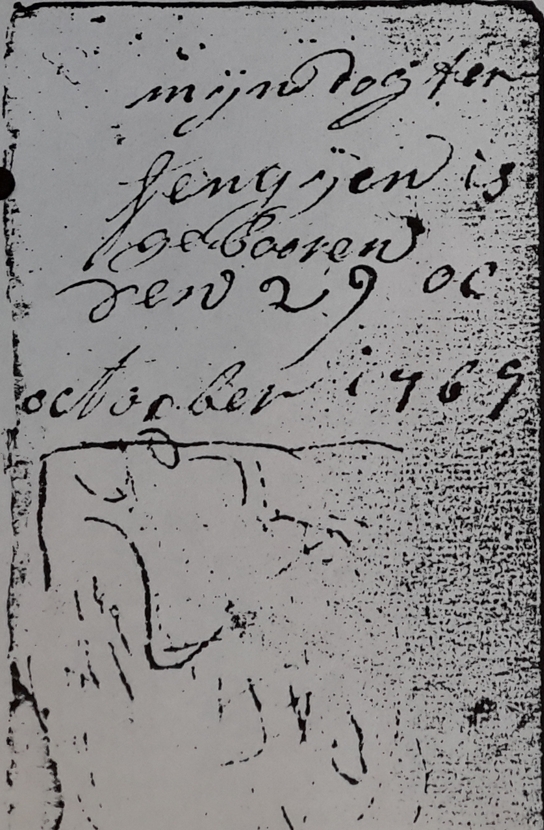 mijn dogter
fengijen is
gebooren
den 29 oc
octoober 1769